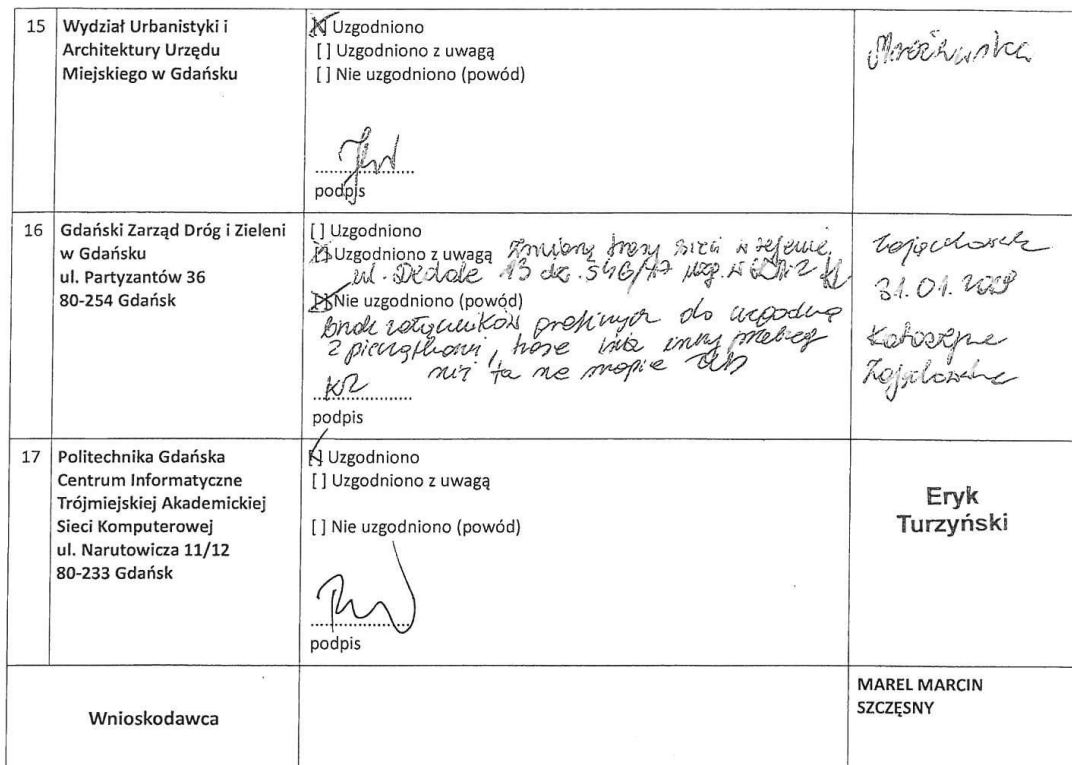 15 Wydział Urbanistyki i
Architektury Urzędu
Miejskiego w Gdańsku
[X] Uzgodniono
[ ] Uzgodniono z uwagą
[ ] Nie uzgodniono (powód)
podpis
16 Gdański Zarząd Dróg i Zieleni
w Gdańsku
ul. Partyzantów 36
80-254 Gdańsk
[ ] Uzgodniono
[X] Uzgodniono z uwagą Zmianę trasy sieci w rejonie
ul. Dedala 13 dz. 546/17
[X] Nie uzgodniono (powód)
Brak załączników graficznych do
z pieczątkami, inny przebieg
niż ta na mapie
KZ
podpis
31.01.
Katarzyna
17 Politechnika Gdańska
Centrum Informatyczne
Trójmiejskiej Akademickiej
Sieci Komputerowej
ul. Narutowicza 11/12
80-233 Gdańsk
[X] Uzgodniono
[ ] Uzgodniono z uwagą
[ ] Nie uzgodniono (powód)
podpis
Eryk
Turzyński
Wnioskodawca
MAREL MARCIN
SZCZĘSNY